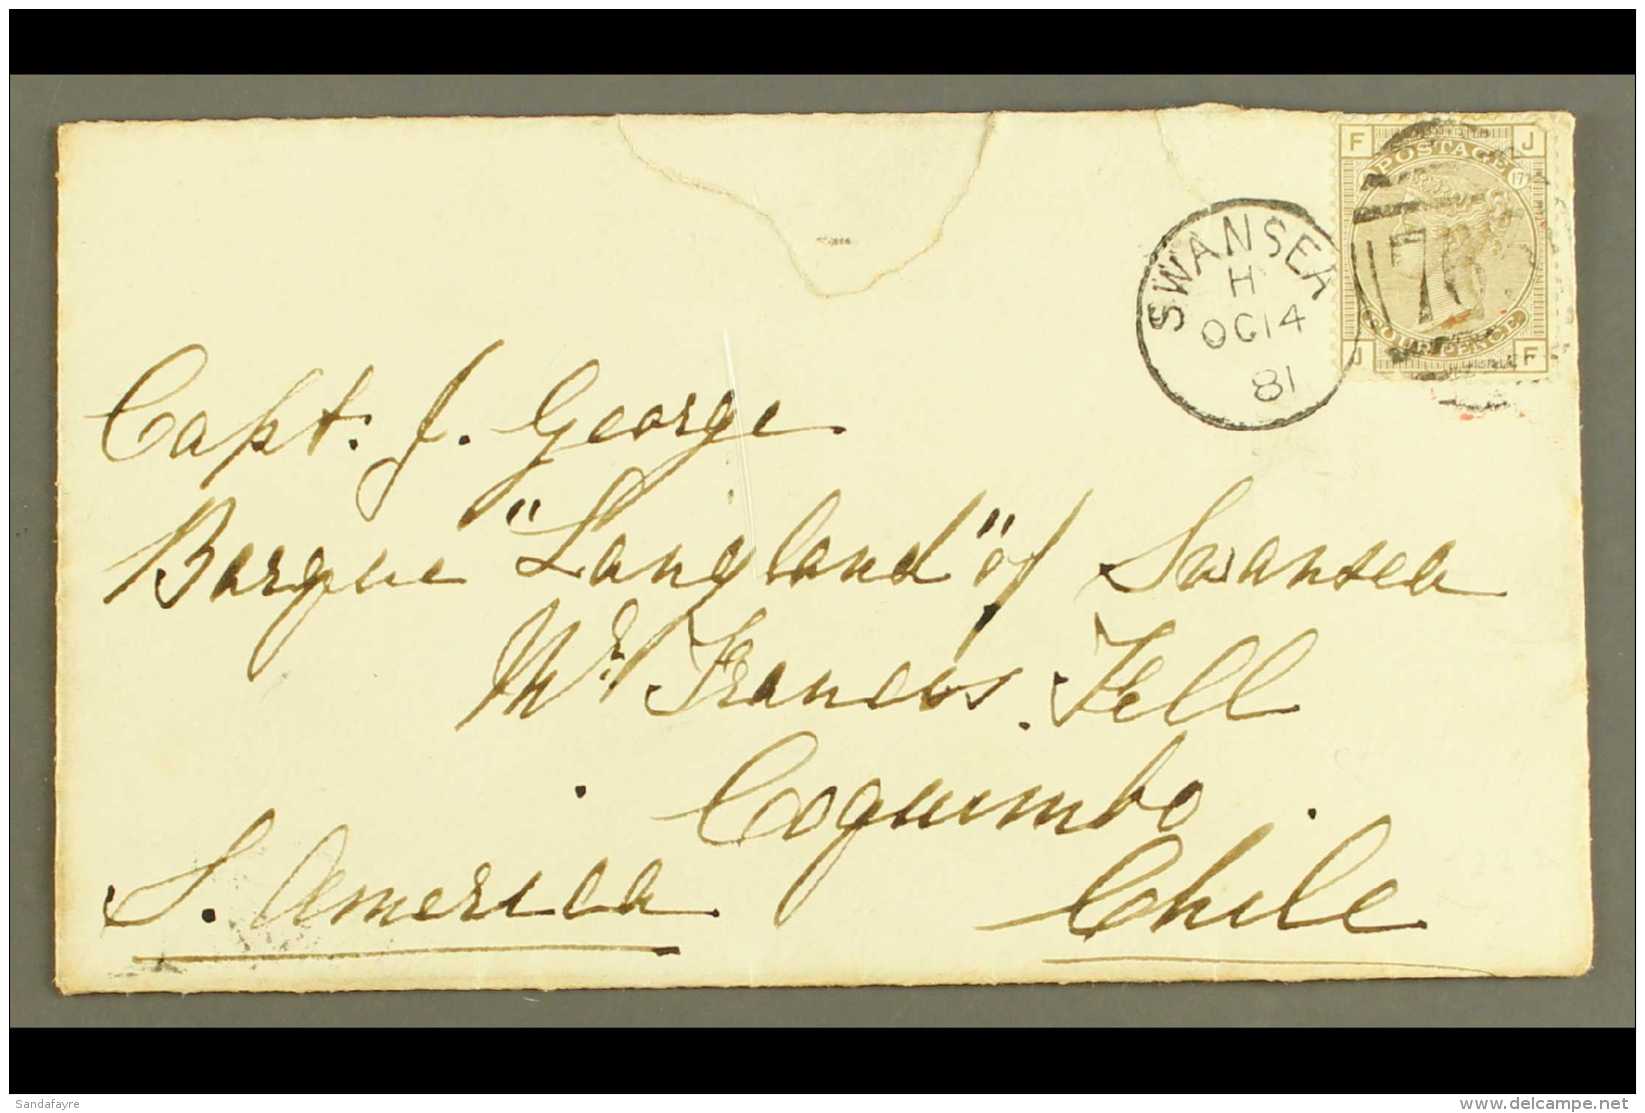 F J
POSTAGE
17
SWANSEA
H
OC 14
81
FOUR PENCE
J F
Capt. J. George
Barque "Langland" of Swansea
Mr. Francis Fell
Coquimbo
S. America Chile
Sandafayre
delcampe.net